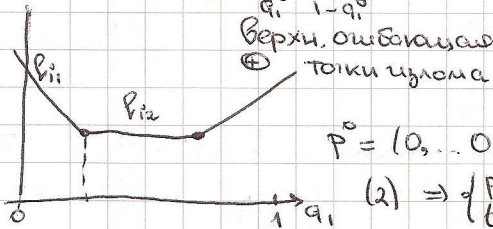 q₁⁰ 1-q₁⁰
Верхн. огибающая
⊕ точки излома
ℓi₁
ℓi₂
p⁰ = (0, ... 0
0 1 q₁
(2) ⇒ {